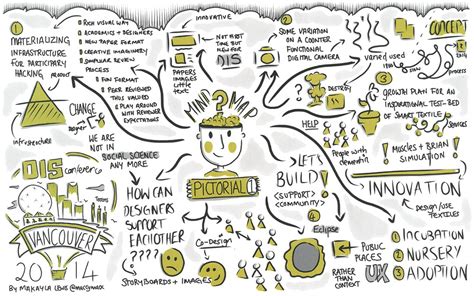 1
MATERIALIZING
INFRASTRUCTURE
FOR PARTICIPATORY
HACKING
product
CHANGE
paper
infrastructure
RICH VISUAL WAY
ACADEMICS + DESIGNERS
NEW PAPER FORMAT
CREATIVE IMAGINERY
SIMPLIER REVIEW
PROCESS
FUN FORMAT
PEER REVIEWED
THIS VALUED
PLAY AROUND
WITH REVIEWS
EXPECTATIONS
WE ARE
NOT IN
SOCIAL SCIENCE
ANY MORE
INNOVATIVE
PAPERS
IMAGES
LITTLE
TEXT
NOT FIRST
TIME BUT
NEW FOR
DIS
2
SOME VARIATION
ON A COUNTER
FUNCTIONAL
DIGITAL CAMERA
DESTROY
varied used
3
CONCEPT
process
GROWTH PLAN FOR AN
INSPIRATIONAL TEST-BED
OF SMART TEXTILE
SERVICES
SOURCES
MUSCLES + BRIAN
SIMULATION
INNOVATION
DESIGN/USE
TEXTILES
1 INCUBATION
2 NURSERY
3 ADOPTION
MIND MAP
?
PICTORIAL
HELP
People with
dementia
LET'S
BUILD
<SUPPORT>
<COMMUNITY>
4
Eclipse
PUBLIC
PLACES
RATHER THAN
CONTEXT
UX
HOW CAN
DESIGNERS
SUPPORT
EACHOTHER?
????
CO-DESIGN
STORYBOARDS + IMAGES
DIS
conference
VANCOUVER
2014
BY MAKAYLA LEWIS